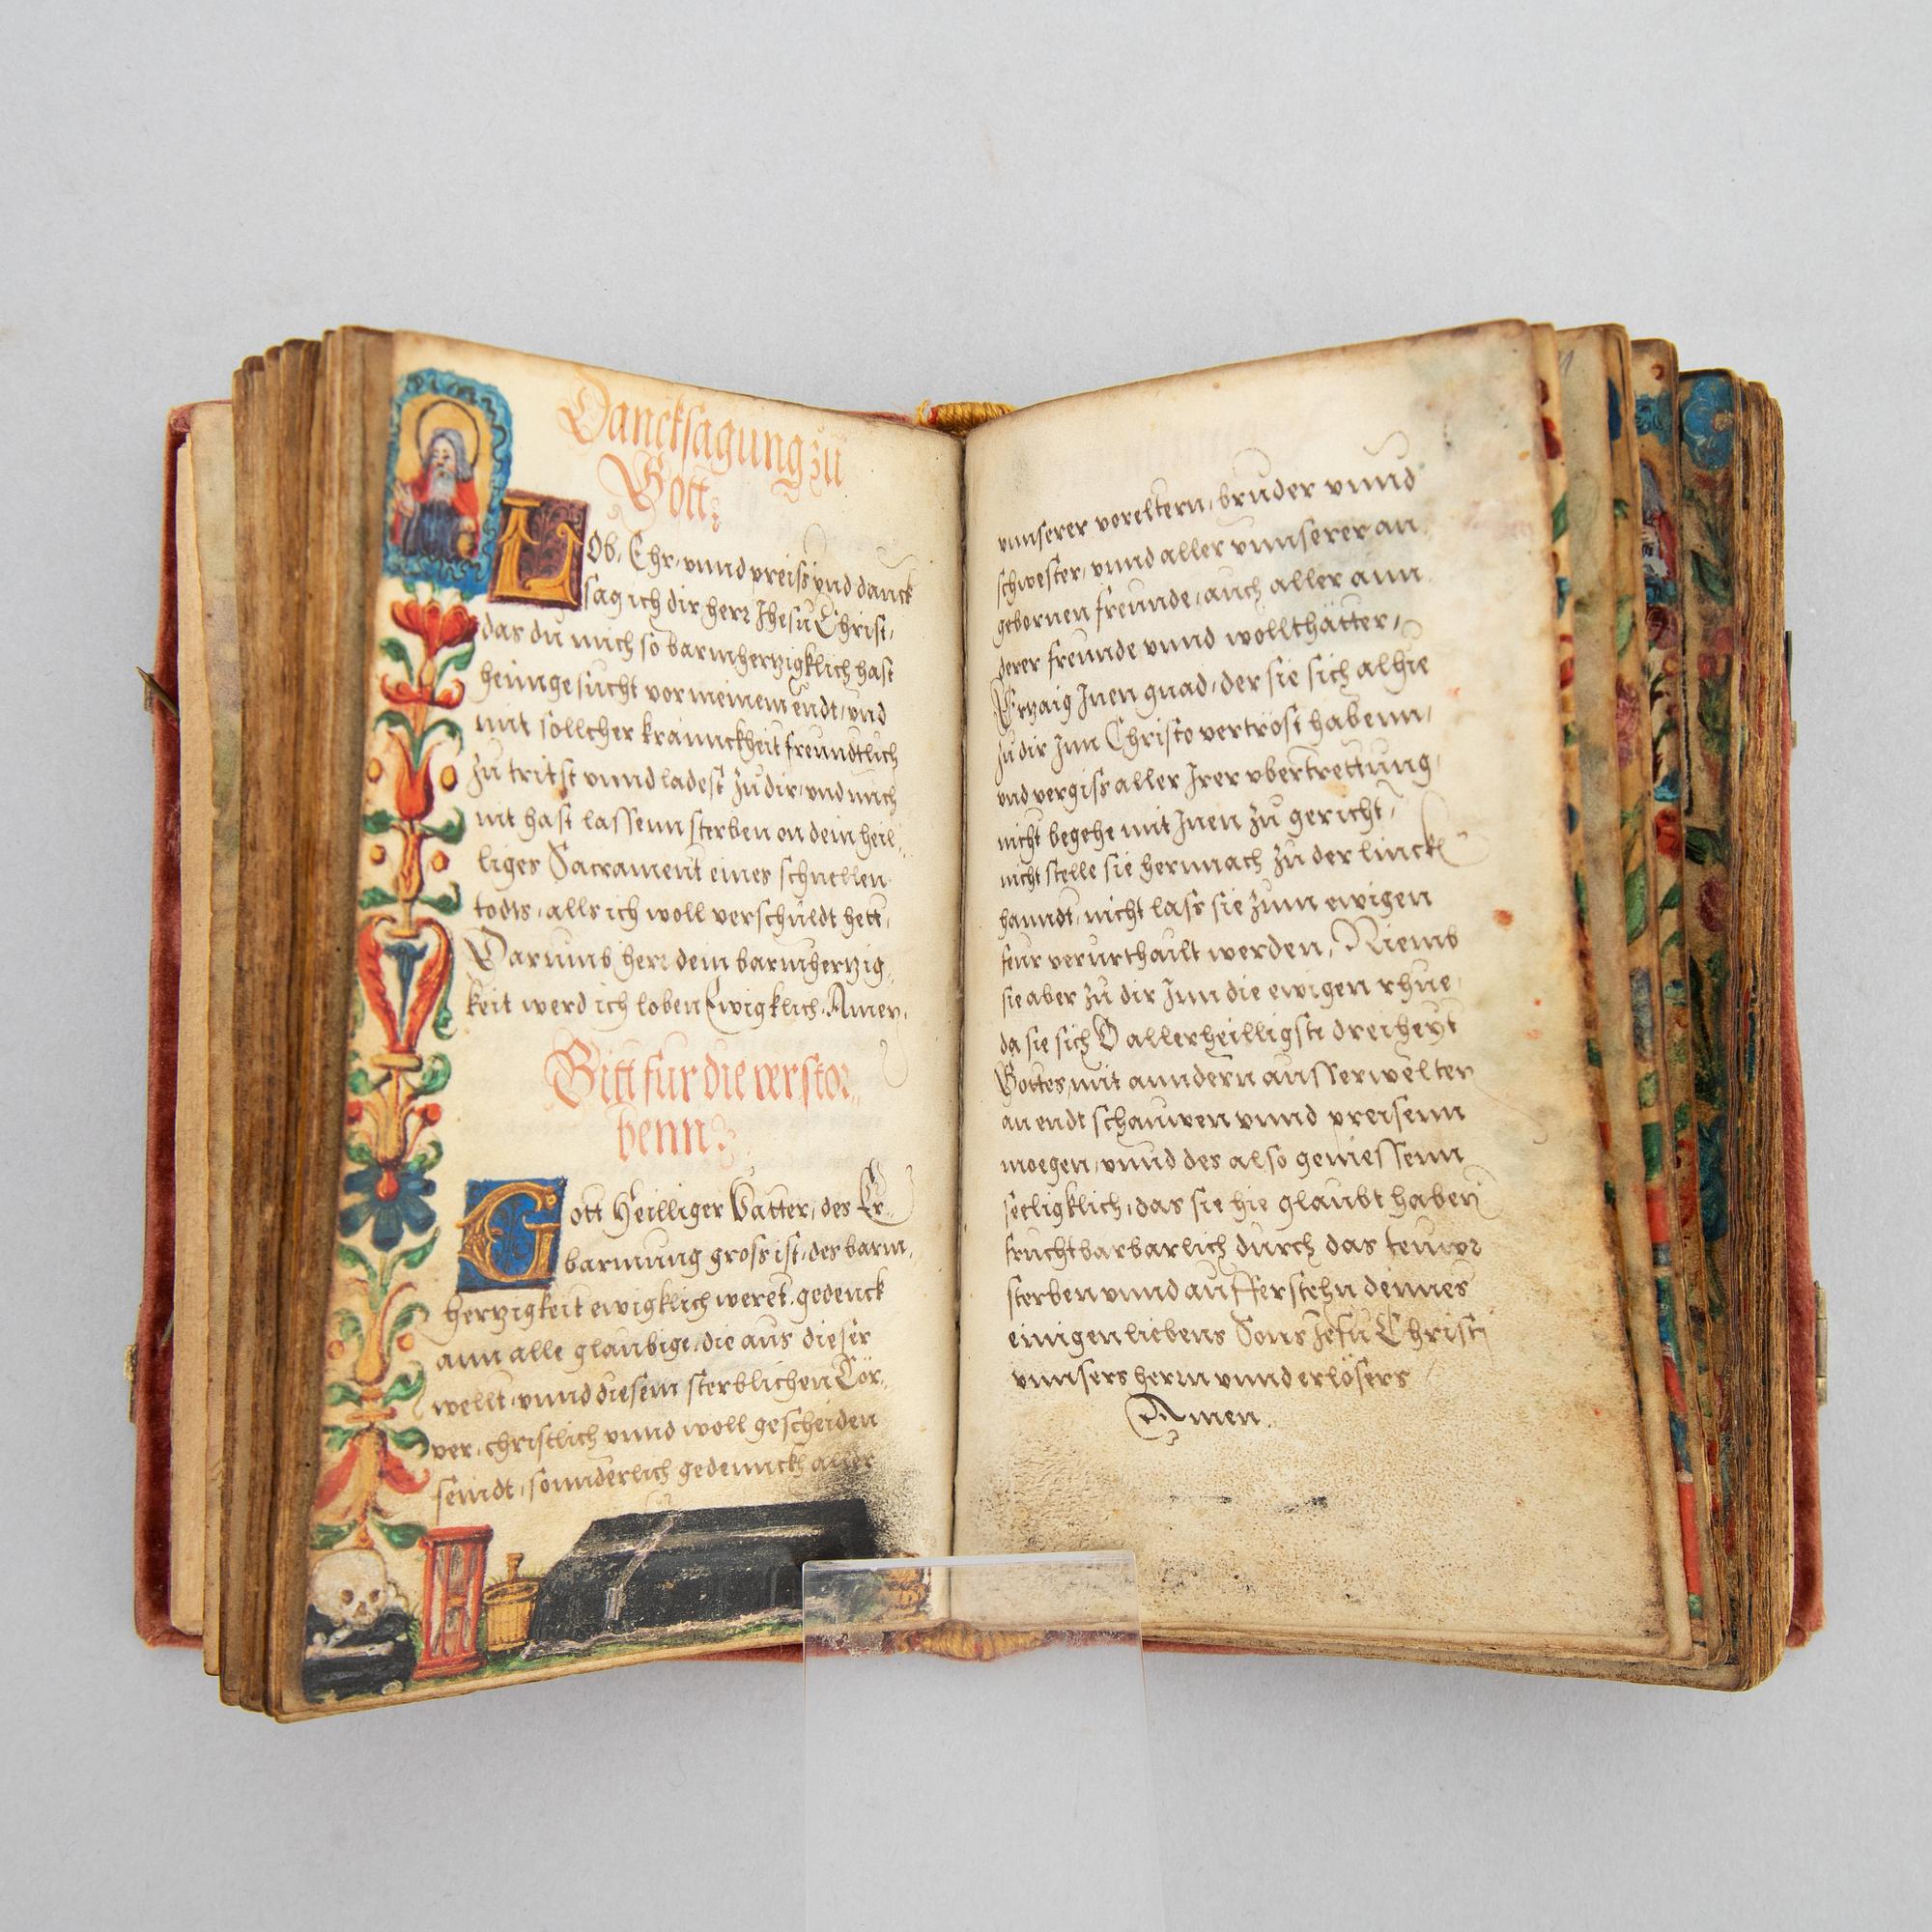 Dancksagung zů
Gott:
LOb, Ehr, vnnd preiss vnd danck
sag ich dir herr Jhesu Christ,
das du mich so barmhertzigklich hast
heimgesucht vor meinem endt, vnd
mit sollcher kranckheit freundtlich
zu tritst vnnd ladest zu dir, vnd mich
nit hast lassenn sterben on dein heil-
liges Sacrament eines schnellen
todts, alls ich woll verschuldt hett,
Darumb herr dein barmhertzig-
keit werd ich loben Ewigklich. Amen.
Bitt fur die verstor-
benn:
Gott Heilliger Vatter, des Er-
barmung gross ist, des barm-
hertzigkeit ewigklich weret, gedenck
ann alle glaubige, die aus dieser
wellt, vnnd diesem sterblichen Cör-
per, christlich vnnd woll gescheiden
seindt, sonnderlich gedennckh aller
vnnserer voreltern, bruder vnnd
schwester, vnnd aller vnnserer an
gebornen freunde, auch aller ann
derer freunde vnnd wollthätter,
Ertzaig Jnen gnad, der sie sich alhie
zu dir Jnn Christo vertröst habenn,
vnd vergiss aller Jrer vbertrettung,
nicht begehe mit Jnen zu gericht,
nicht stelle sie hernnach zu der linckē
hanndt, nicht lass sie zum ewigen
feur verurthailt werden, Niemb
sie aber zu dir Jnn die ewigen rhue,
da sie sich O allerheilligste dreiheyt
Gottes, mit anndern ausserwelten
an endt schauwen vnnd preisenn
moegen, vnnd des also geniessenn
seeligklich, das sie hie glaubt haben
fruchtbarbarlich durch das teuwr
sterben vnnd aufferstehn deines
einigen liebens Sons Jesu Christi
vnnsers herrn vnnd erlösers
Amen.